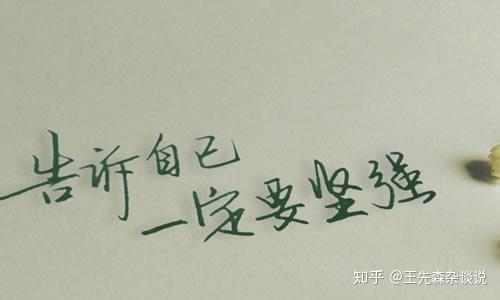 告诉自己
一定要坚强
知乎 @王先森杂谈说